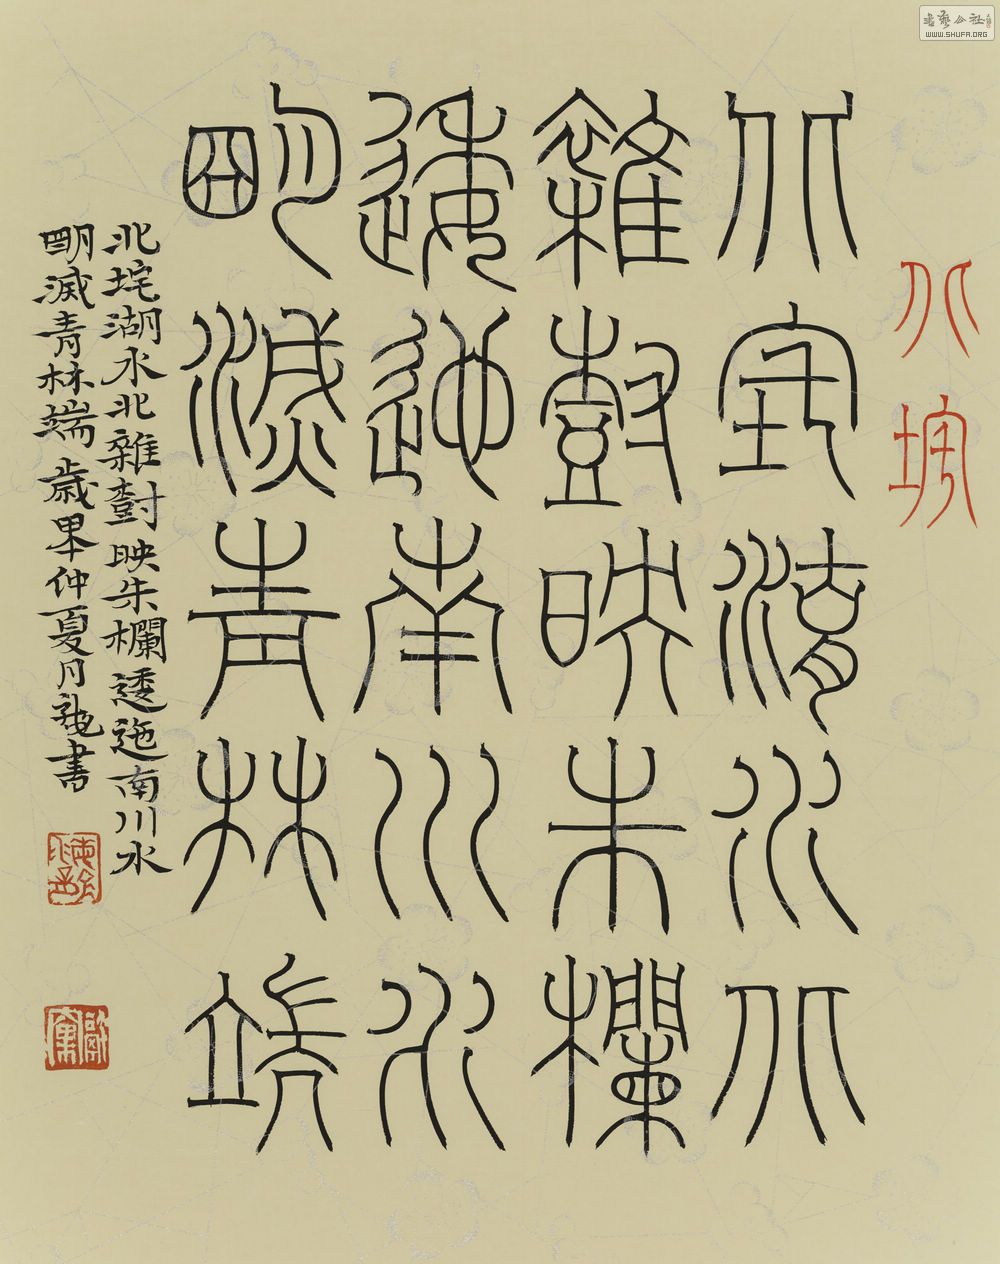 書藝公社
WWW.SHUFA.ORG
北垞
北垞湖水北
雜樹映朱欄
逶迤南川水
朙滅青林端
北垞湖水北雜樹映朱欄逶迤南川水
明滅青林端 歲甲午仲夏月書